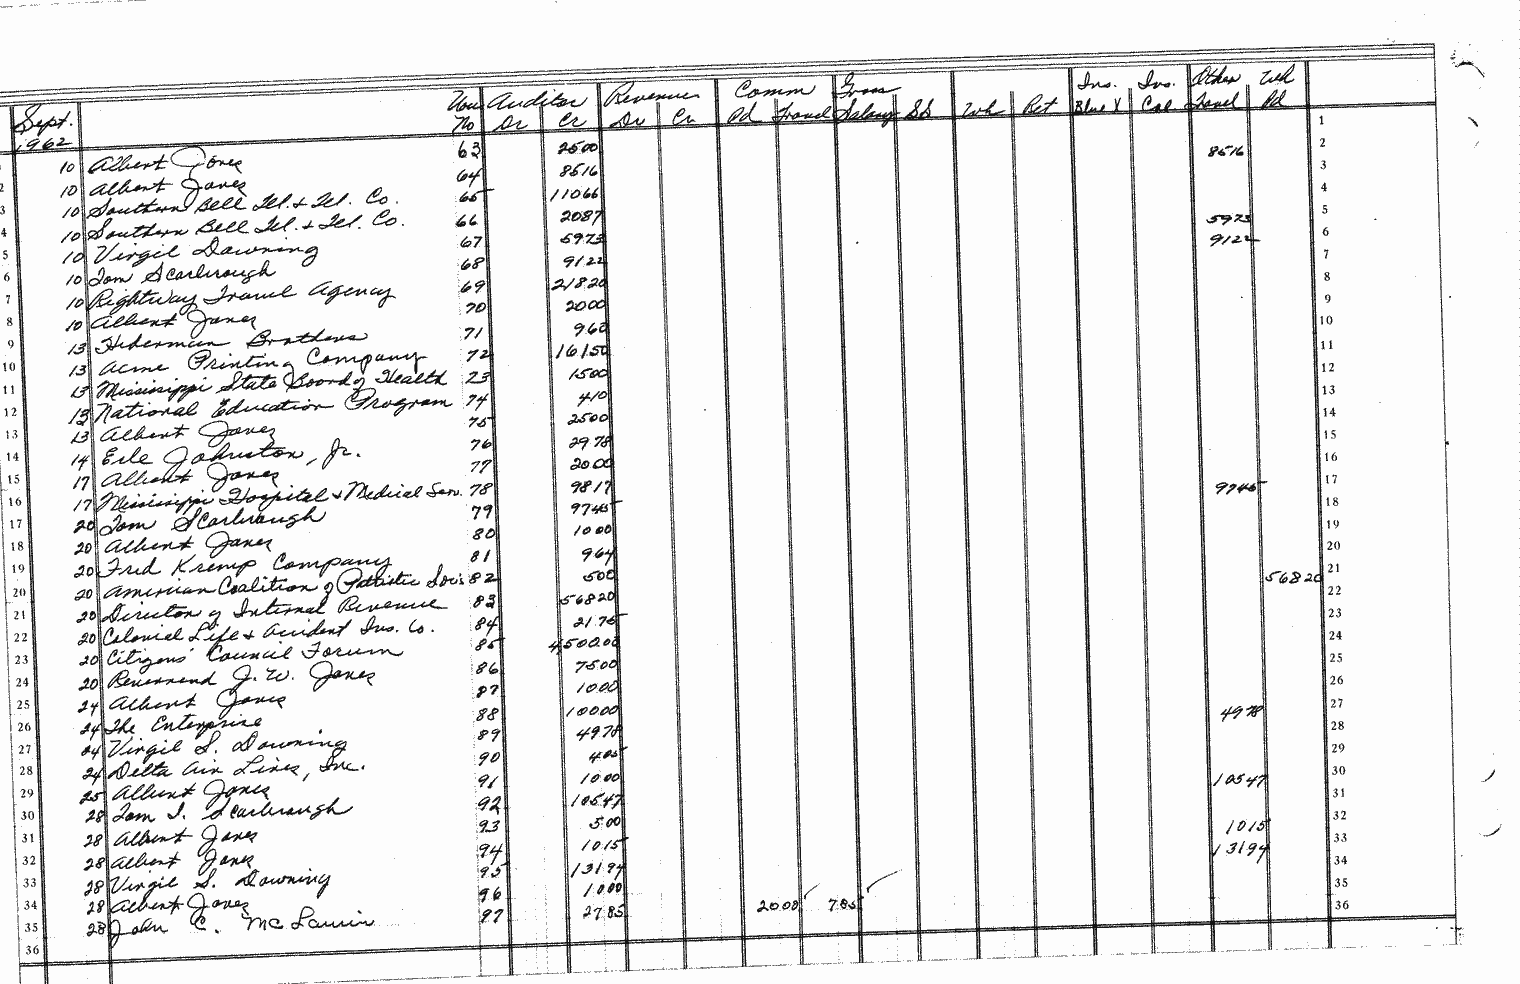 Sept. 1962 Vou No Auditor Dr Cr Revenue Dr Cr Comm Pd Travel Gross Salary SS Wh Ret Ins. Blue X Ins. Col Other Travel Wh Pd 1
1 10 Albert Jones 63 2500 2
2 10 Albert Jones 64 8516 8516 3
3 10 Southern Bell Tel. & Tel. Co. 65 11066 4
4 10 Southern Bell Tel. & Tel. Co. 66 2087 5
5 10 Virgil Downing 67 5973 5973 6
6 10 Tom Scarbrough 68 9122 9122 7
7 10 Rightway Travel Agency 69 21820 8
8 10 Albert Jones 70 2000 9
9 13 Hederman Brothers 71 960 10
10 13 Acme Printing Company 72 16150 11
11 13 Mississippi State Board of Health 73 1500 12
12 13 National Education Program 74 410 13
13 13 Albert Jones 75 2500 14
14 14 Erle Johnston, Jr. 76 2978 15
15 17 Albert Jones 77 2000 16
16 17 Mississippi Hospital & Medical Serv. 78 9817 17
17 20 Tom Scarbrough 79 9745 9745 18
18 20 Albert Jones 80 1000 19
19 20 Fred Kremp Company 81 964 20
20 20 American Coalition of Patriotic Soc's 82 500 21
21 20 Director of Internal Revenue 83 56820 56820 22
22 20 Colonial Life & Accident Ins. Co. 84 2175 23
23 20 Citizens' Council Forum 85 450000 24
24 20 Reverend J. W. Jones 86 7500 25
25 24 Albert Jones 87 1000 26
26 24 The Enterprise 88 10000 27
27 24 Virgil S. Downing 89 4978 4978 28
28 24 Delta Air Lines, Inc. 90 405 29
29 25 Albert Jones 91 1000 30
30 28 Tom I. Scarbrough 92 10547 10547 31
31 28 Albert Jones 93 500 32
32 28 Albert Jones 94 1015 1015 33
33 28 Virgil S. Downing 95 13194 13194 34
34 28 Albert Jones 96 1000 35
35 28 John C. McLaurin 97 2785 2000 785 36
36